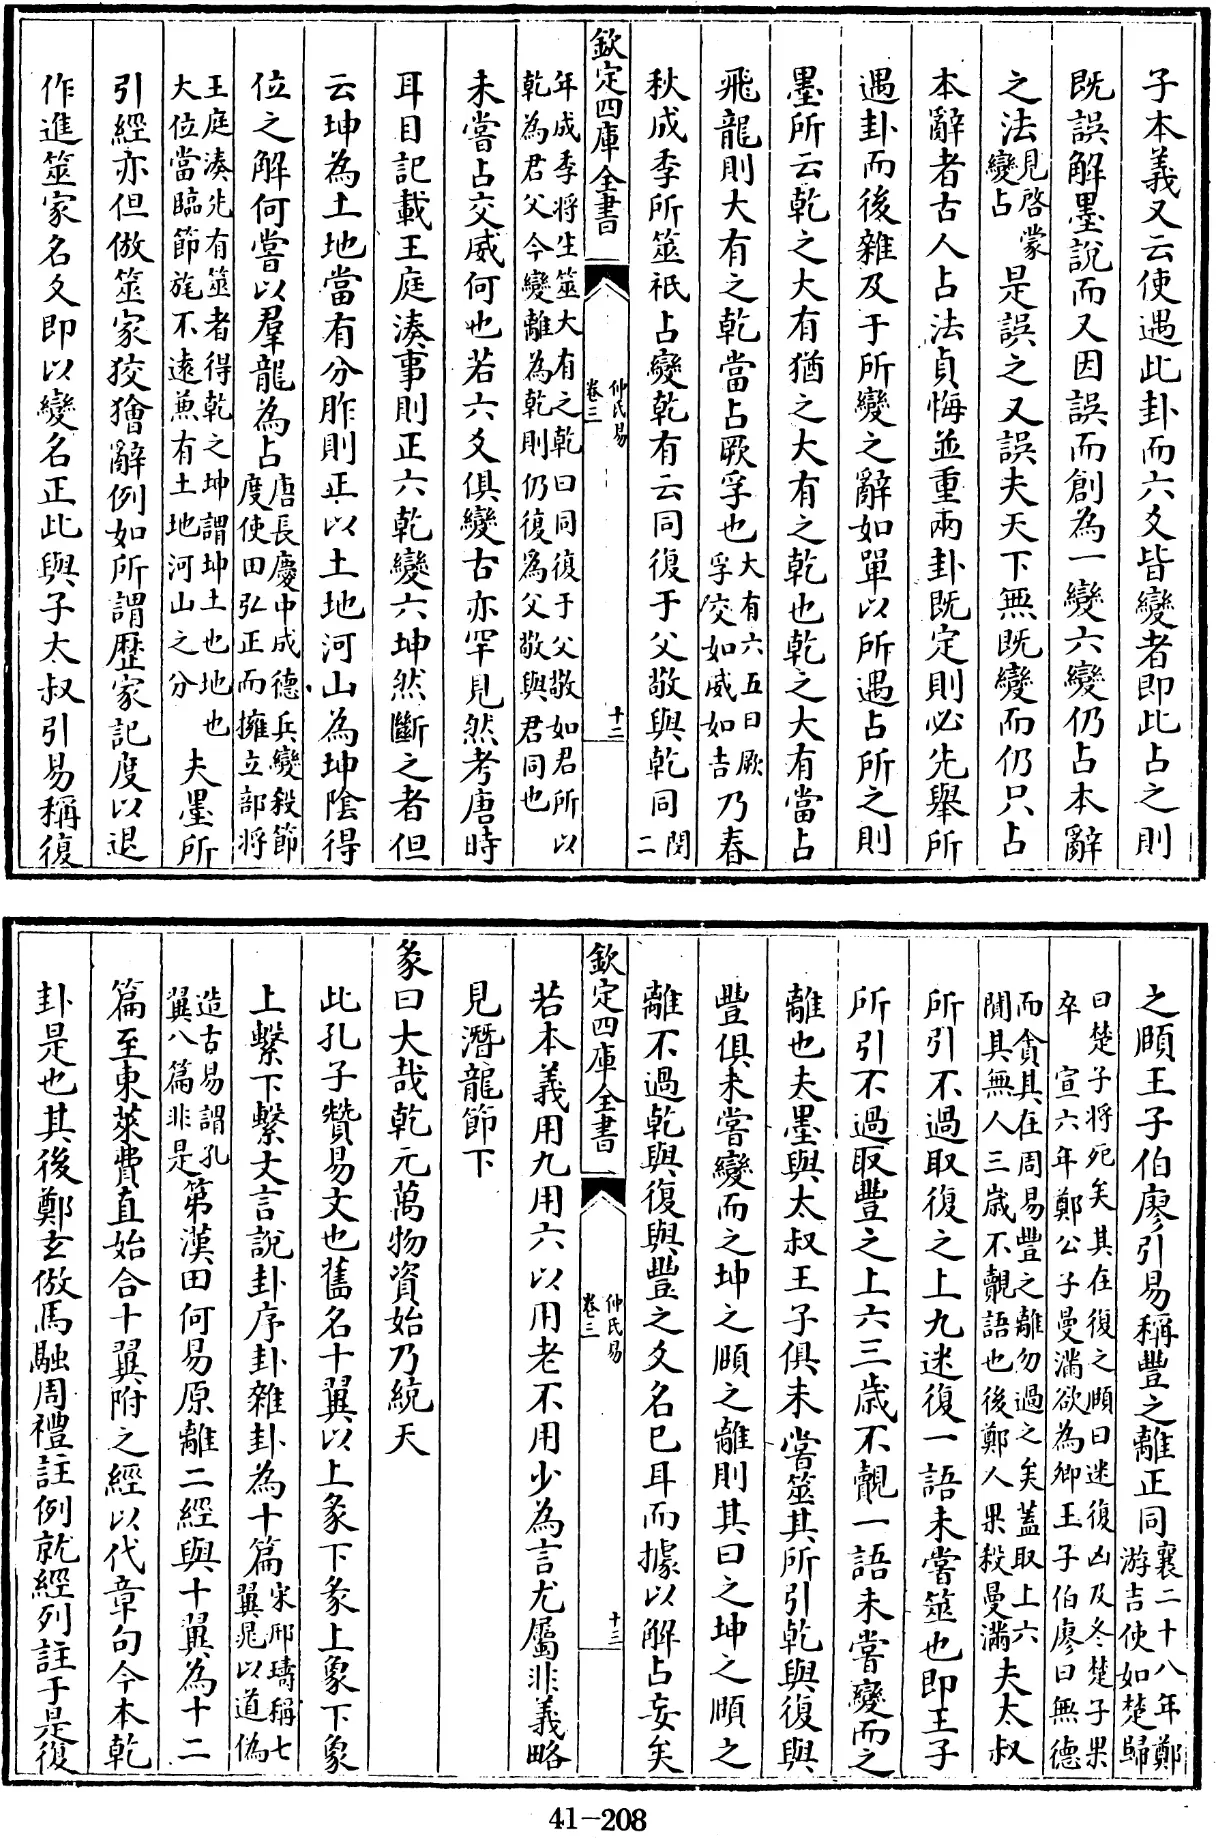 子本義又云使遇此卦而六爻皆變者即此占之則
既誤解墨說而又因誤而創為一變六變仍占本辭
之法見啓蒙變占是誤之又誤夫天下無既變而仍只占
本辭者古人占法貞悔並重兩卦既定則必先舉所
遇卦而後雜及于所變之辭如單以所遇占所之則
墨所云乾之大有猶之大有之乾也乾之大有當占
飛龍則大有之乾當占厥孚也大有六五曰厥孚交如威如吉乃春
秋成季所筮祇占變乾有云同復于父敬與乾同閔二
欽定四庫全書
仲氏易
卷三
十二
年成季將生筮大有之乾曰同復于父敬如君所以乾為君父今變離為乾則仍復為父敬與君同也
未嘗占交威何也若六爻俱變古亦罕見然考唐時
耳目記載王庭湊事則正六乾變六坤然斷之者但
云坤為土地當有分胙則正以土地河山為坤陰得
位之解何嘗以羣龍為占唐長慶中成德兵變殺節度使田弘正而擁立部將
王庭湊先有筮者得乾之坤謂坤土也地也大位當臨節旄不遠兼有土地河山之分夫墨所
引經亦但倣筮家狡獪辭例如所謂歷家記度以退
作進筮家名爻即以變名正此與子太叔引易稱復
之頤王子伯廖引易稱豐之離正同襄二十八年鄭游吉使如楚歸
曰楚子將死矣其在復之頤曰迷復凶及冬楚子果卒 宣六年鄭公子曼滿欲為卿王子伯廖曰無德
而貪其在周易豐之離勿過之矣蓋取上六闃其無人三歲不覿語也後鄭人果殺曼滿夫太叔
所引不過取復之上九迷復一語未嘗筮也即王子
所引不過取豐之上六三歲不覿一語未嘗變而之
離也夫墨與太叔王子俱未嘗筮其所引乾與復與
豐俱未嘗變而之坤之頤之離則其曰之坤之頤之
離不過乾與復與豐之爻名已耳而據以解占妄矣
欽定四庫全書
仲氏易
卷三
十三
若本義用九用六以用老不用少為言尤屬非義略
見潛龍節下
彖曰大哉乾元萬物資始乃統天
此孔子贊易文也舊名十翼以上彖下彖上象下象
上繫下繫文言說卦序卦雜卦為十篇宋邢璹稱七翼晁以道偽
造古易謂孔翼八篇非是第漢田何易原離二經與十翼為十二
篇至東萊費直始合十翼附之經以代章句今本乾
卦是也其後鄭玄倣馬融周禮註例就經列註于是復
41-208